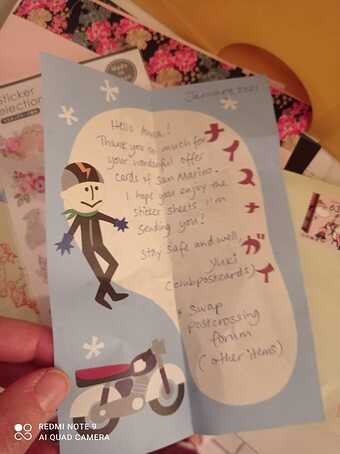 January 2021
Hello Anna!
Thank you so much for
your wonderful offer
cards of San Marino.
I hope you enjoy the
sticker sheets I'm
sending you!
Stay safe and well,
Yuki
(clubpostcards)
* swap
postcrossing
forum
(other items)
ナイスナガイ
Sticker
Selection
REDMI NOTE 9
AI QUAD CAMERA